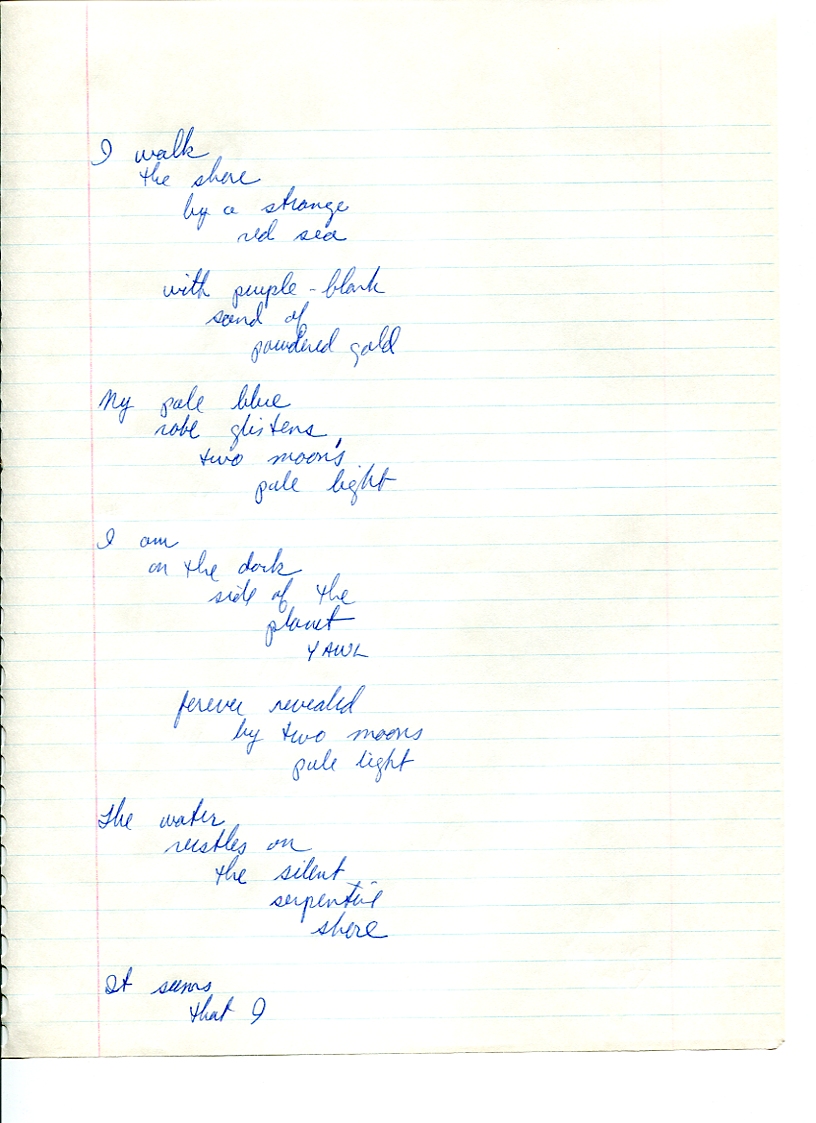 I walk
the shore
by a strange
red sea
with purple-black
sand of
powdered gold
My pale blue
robe glistens
two moon's
pale light
I am
on the dark
side of the
planet
YAWL
forever revealed
by two moons
pale light
The water
rustles on
the silent
serpentine
shore
It seems
that I